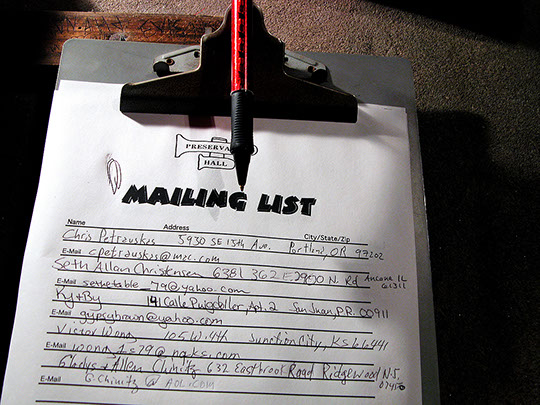 PRESERVATION
HALL
MAILING LIST
Name Address City/State/Zip
Chris Petrauskas 5930 SE 15th Ave. Portland, OR 97202
E-Mail cpetrauskas@mac.com
Seth Allan Christensen 6381 362E 2950 N Rd Ancona IL 61311
E-Mail 79@yahoo.com
Ky + By 141 Calle Apt. 2 San Juan, P.R. 00911
E-Mail @yahoo.com
Victor Wong 105 W. 4th Junction City, KS 66441
E-Mail
Gladys & Allen Chinitz 632 Eastbrook Road Ridgewood N.J. 07450
E-Mail G.Chinitz @ AOL.COM